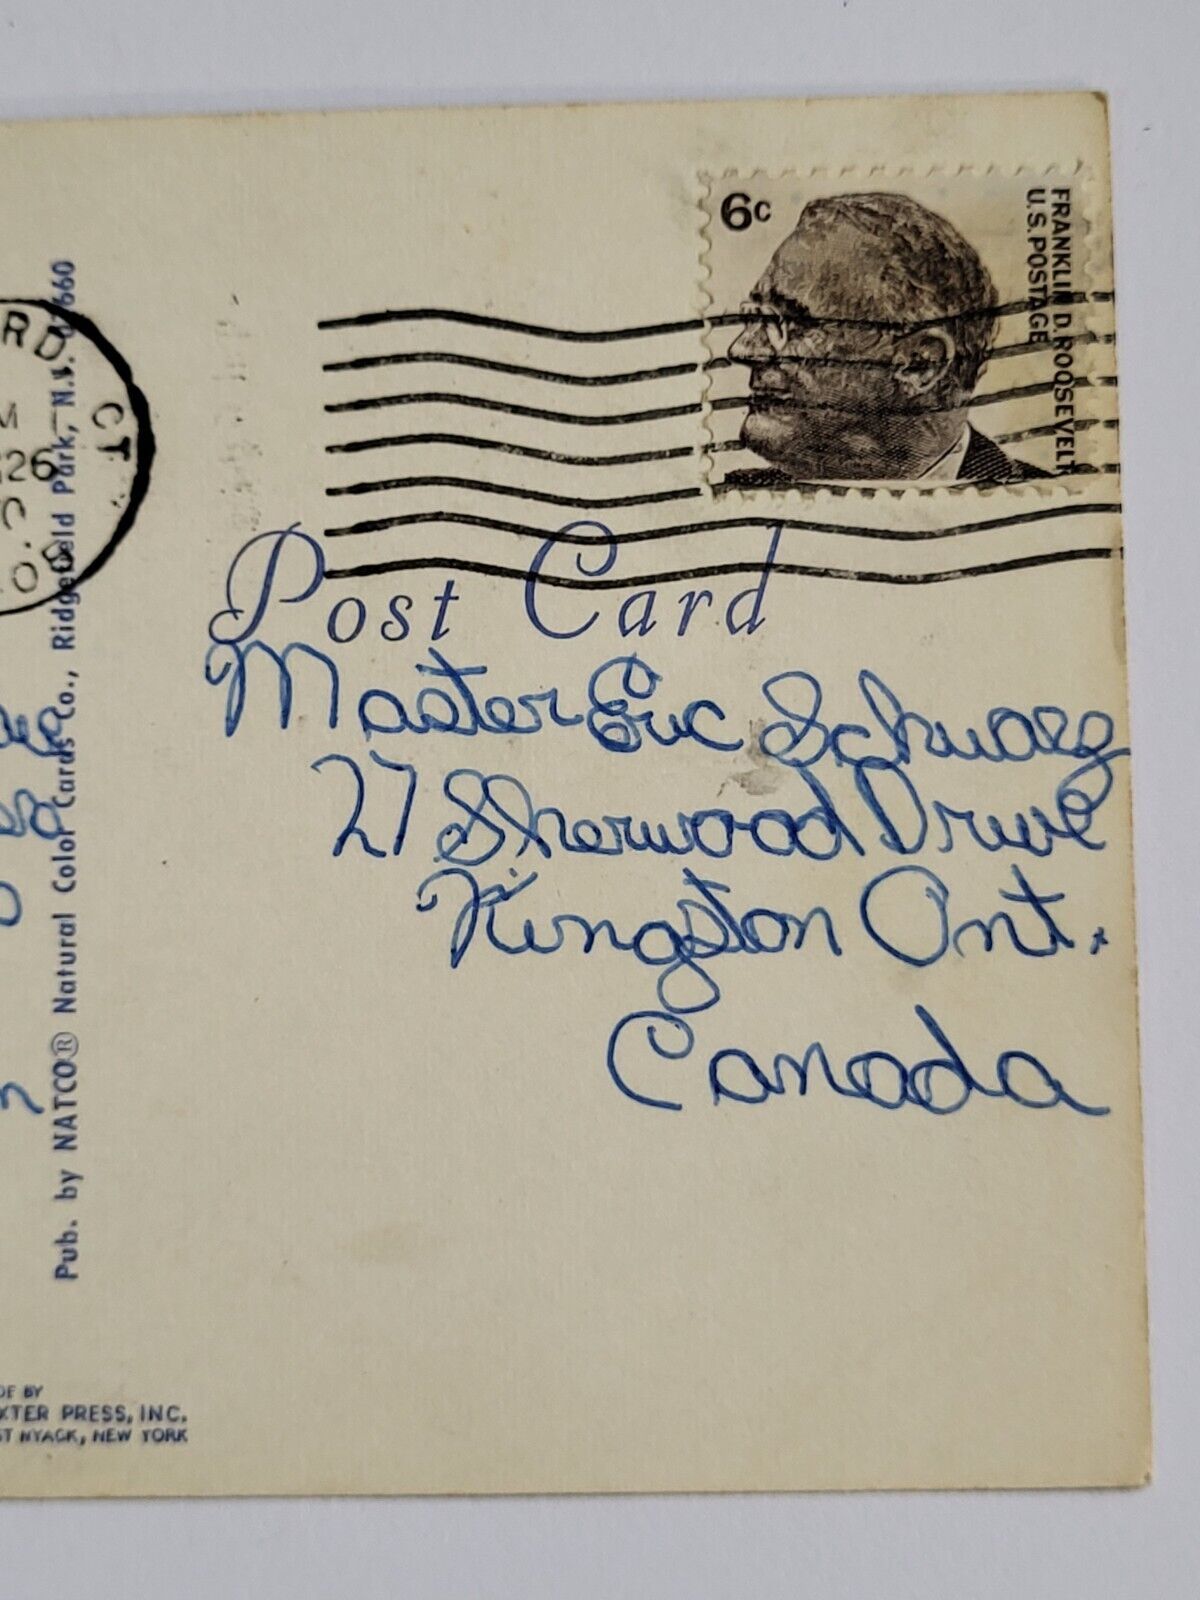 6c
FRANKLIN D. ROOSEVELT
U.S. POSTAGE
RD CT
26
Post Card
Master Eric Schwarz
27 Sherwood Drive
Kingston Ont.
Canada
Pub. by NATCO® Natural Color Cards Co., Ridgefield Park, N.J. 07660
BY
PRESS, INC.
NYACK, NEW YORK